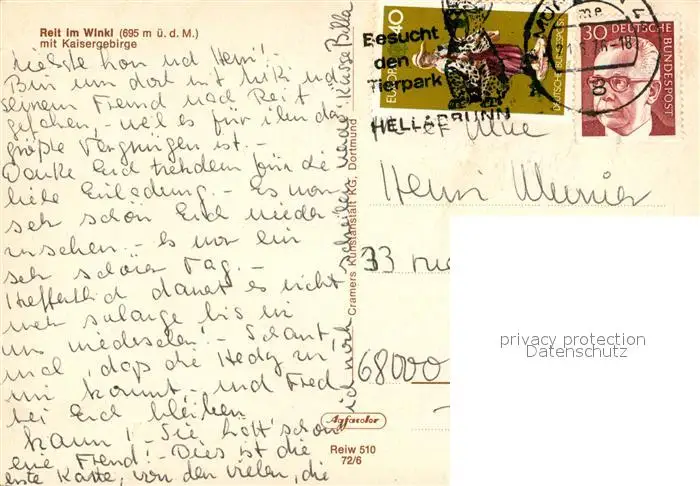 Reit im Winkl (695 m ü. d. M.)
mit Kaisergebirge
Bin um dort mit Niki und
seinem Freund nach Reit
gefahren, weil es für ihn das
große Vergnügen ist. -
Danke Euch trotzdem für die
liebe Einladung. - Es war
sehr schön Euch wieder
zusehen - Es war ein
sehr schöner Tag. -
Hoffentlich dauert es nicht
mehr solange bis wir
uns wiedersehen! - Schaut,
mal, dass die Hedy zu
mir kommt, und Fred
bei Euch bleiben
kann! - Sie hätt' schon
eine Freud! - Dies ist die
erste Karte, von den vielen, die
ich noch schreiben werde! Küsse Billa
Cramers Kunstanstalt KG, Dortmund
Agfacolor
Reiw 510
72/6
Besucht
den
Tierpark
HELLABRUNN
MÜ
me
80
40
EUROPA
DEUTSCHE BUNDESPOST
30
DEUTSCHE BUNDESPOST
Henri
33 rue
68000
privacy protection
Datenschutz